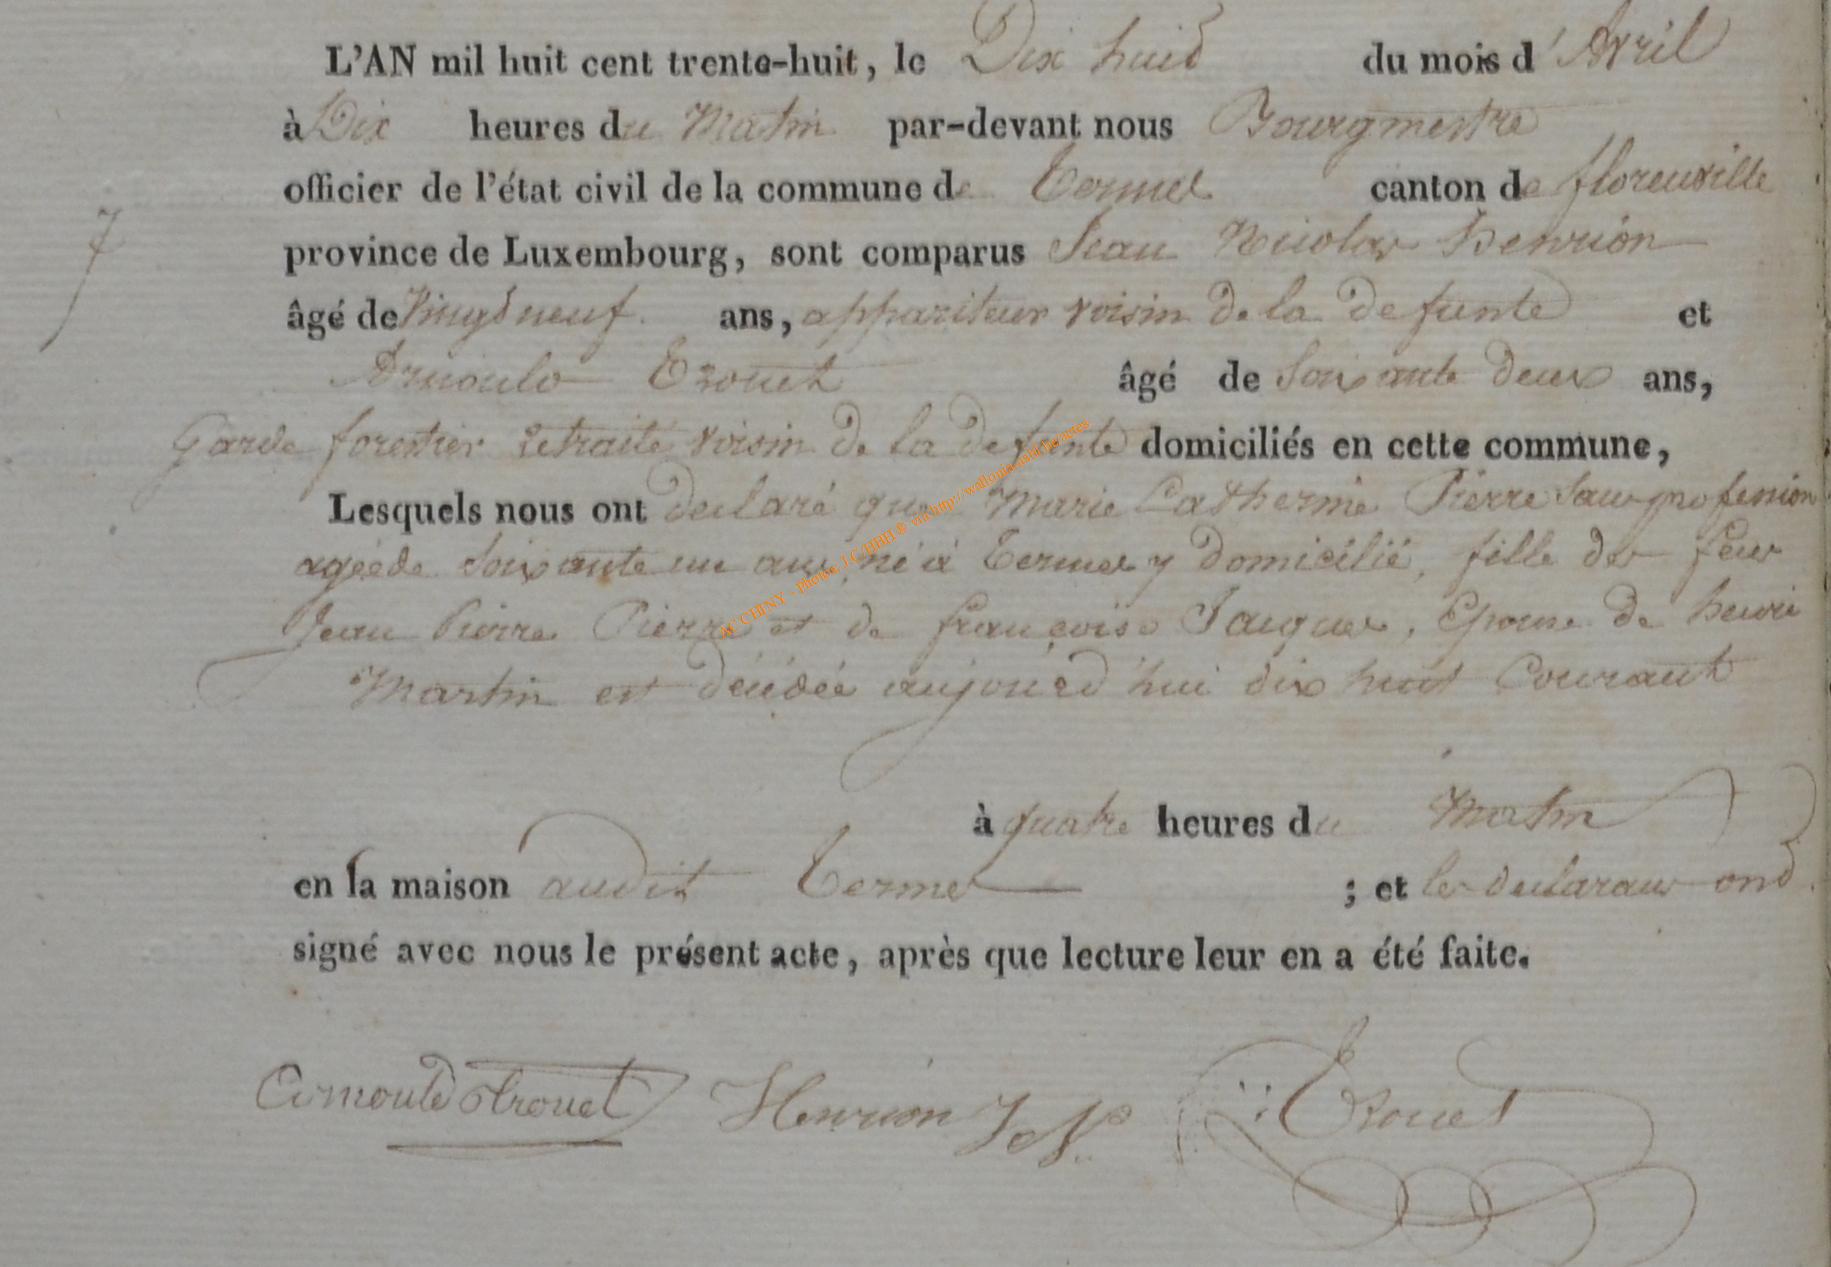 L'AN mil huit cent trente-huit, le Dix huit du mois d'Avril
à Dix heures du Matin par-devant nous Bourgmestre
officier de l'état civil de la commune de Termes canton de florenville
7
province de Luxembourg, sont comparus Jean Nicolas Henrion
âgé de Vingt neuf ans, appariteur voisin de la defunte et
Arnould Trouet âgé de Soixante deux ans,
Garde forestier retraité voisin de la defunte domiciliés en cette commune,
Lesquels nous ont declaré que Marie Catherine Pierre Sans profession
agée de Soixante un ans, né à Termes y domicilié, fille de feu
Jean Pierre Pierre et de françoise Jacques, Epouse de henri
Martin est décédée aujourd'hui dix huit Courant
à quatre heures du Matin
en la maison audit Termes ; et les declarans ont
signé avec nous le présent acte, après que lecture leur en a été faite.
Arnould Trouet Henrion J N Trouet
AC CHINY - Photos J.C.HBH® via http://wallonia-matchers